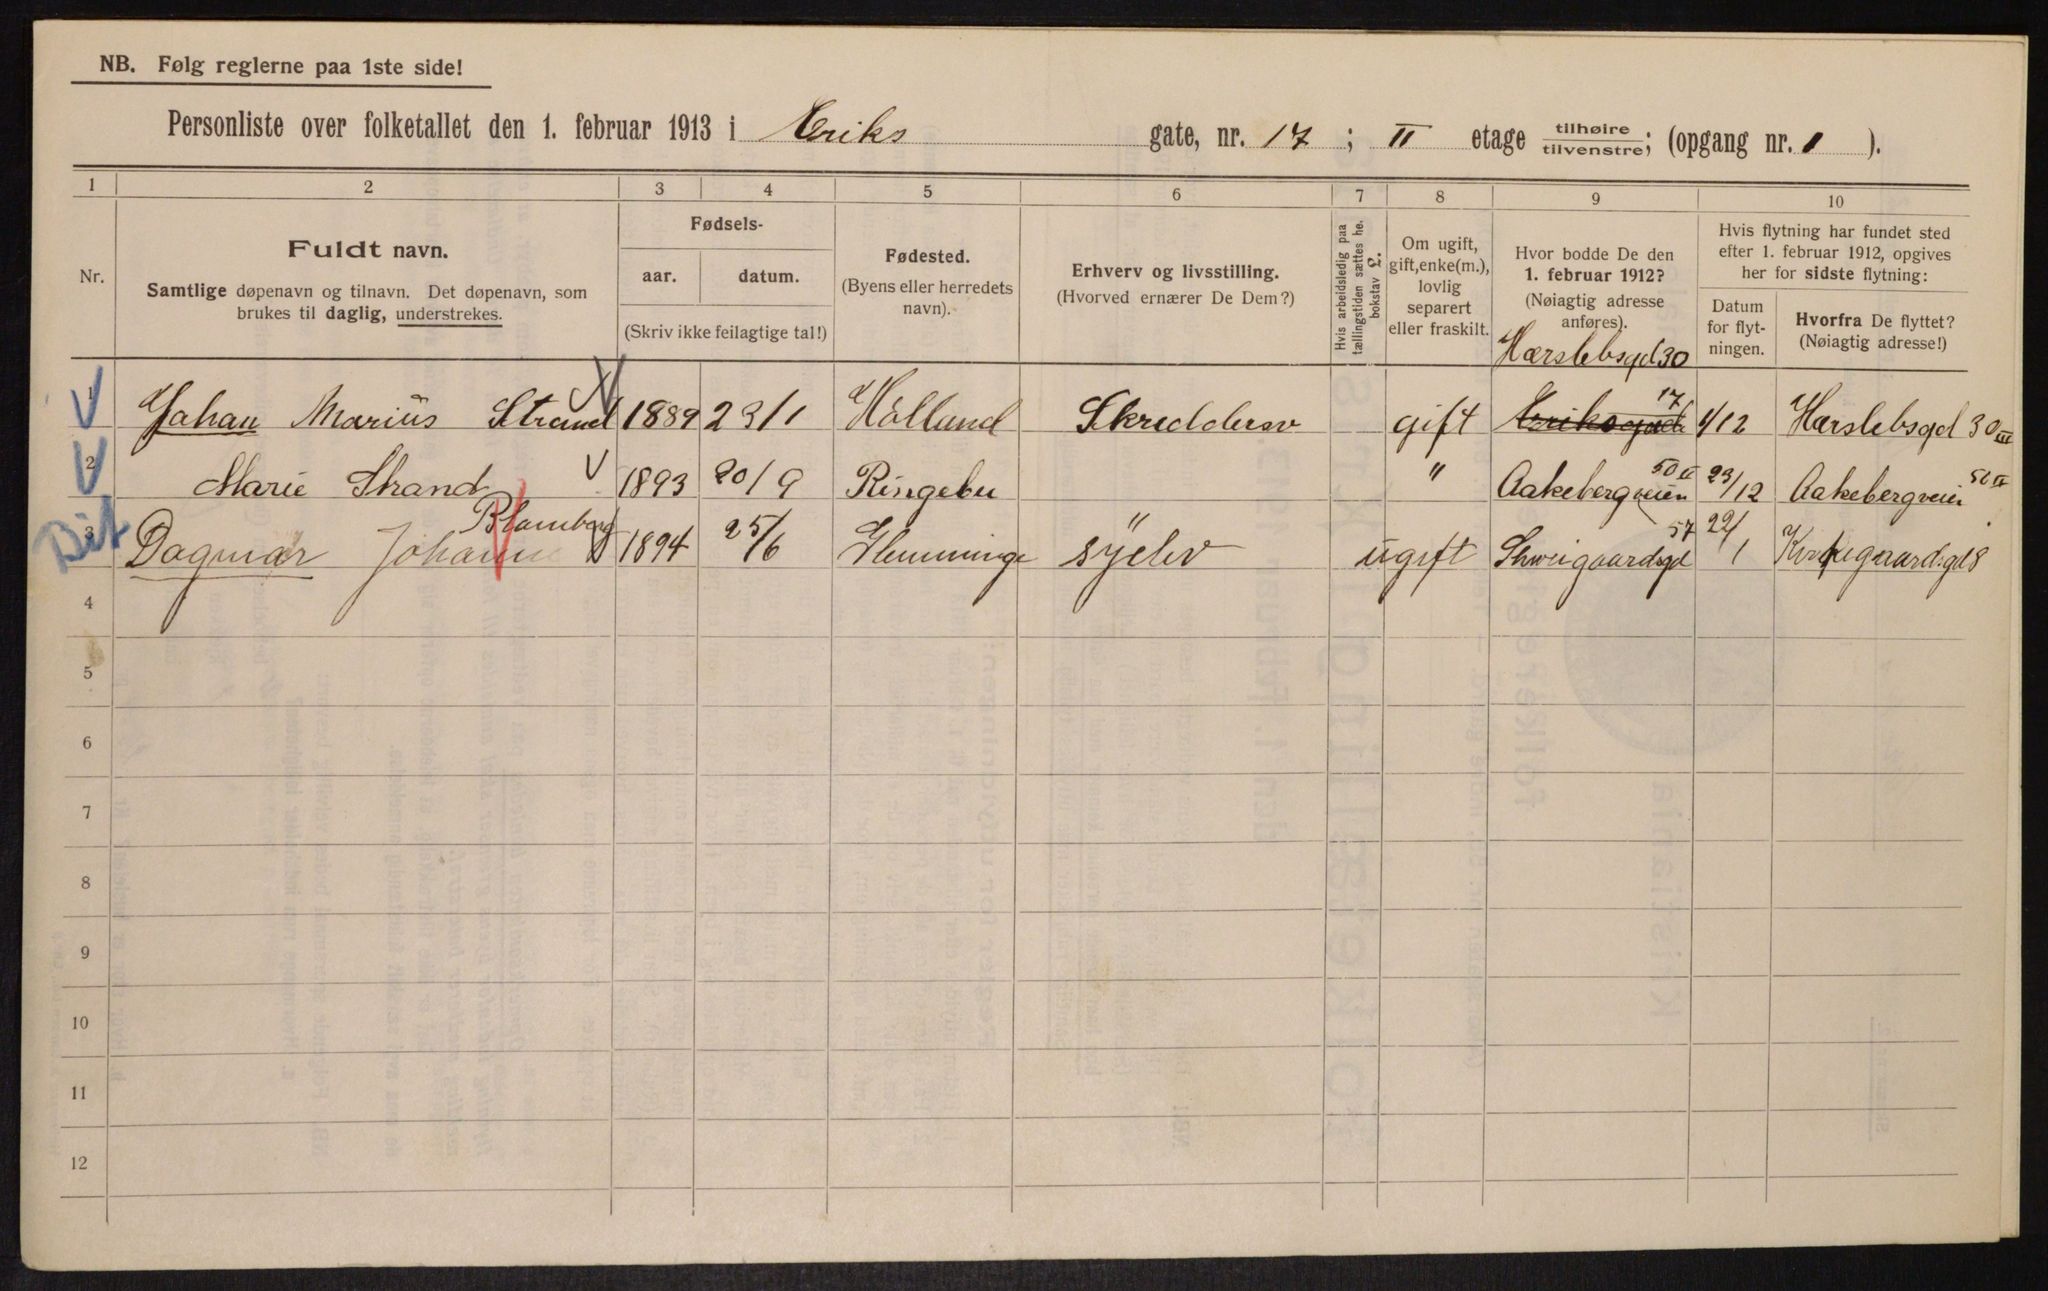 NB. Følg reglerne paa 1ste side!
Personliste over folketallet den 1. februar 1913 i Eriks gate, nr. 17 ; II etage tilhøire tilvenstre; (opgang nr. 1 ).
1 2 3 4 5 6 7 8 9 10
Nr.
Fuldt navn.
Samtlige døpenavn og tilnavn. Det døpenavn, som
brukes til daglig, understrekes.
Fødsels-
aar. datum.
(Skriv ikke feilagtige tal!)
Fødested.
(Byens eller herredets
navn).
Erhverv og livsstilling.
(Hvorved ernærer De Dem?)
Hvis arbeidsledig paa
tællingstiden sættes he.
bokstav L.
Om ugift,
gift, enke(m.),
lovlig
separert
eller fraskilt.
Hvor bodde De den
1. februar 1912?
(Nøiagtig adresse
anføres).
Hvis flytning har fundet sted
efter 1. februar 1912, opgives
her for sidste flytning:
Datum
for flyt-
ningen.
Hvorfra De flyttet?
(Nøiagtig adresse!)
Hærslebsgd 30
1 Johan Marius Strand 1889 23/1 Hölland Skreddersv gift Eriksgade 17 1/12 Hærslebsgd 30 III
2 Marie Strand 1893 20/9 Ringebu " Aakebergveien 50 II 23/12 Aakebergveien 50 II
Bit
3 Dagmar Johanne Blomberg 1894 25/6 Glemminge syelv ugift Schweigaardsgd 57 22/1 Kirkegaardsgd 8
4
5
6
7
8
9
10
11
12